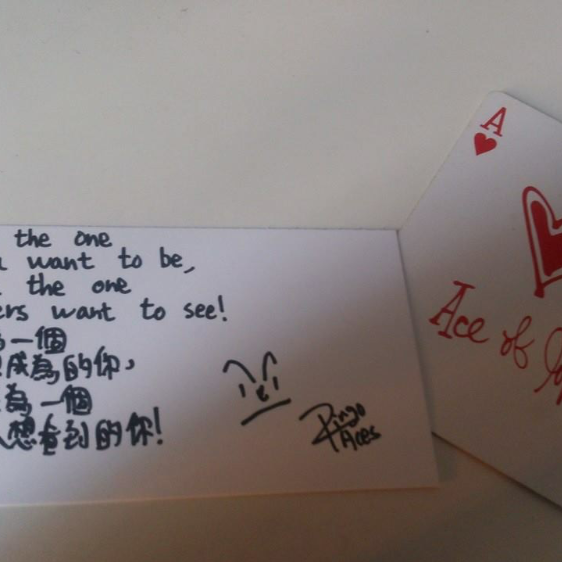 the one
want to be,
the one
ers want to see!
一個
成為的你，
為一個
想看到的你!
Ringo
Aces
A
Ace of